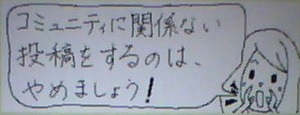 コミュニティに関係ない
投稿をするのは、
やめましょう!